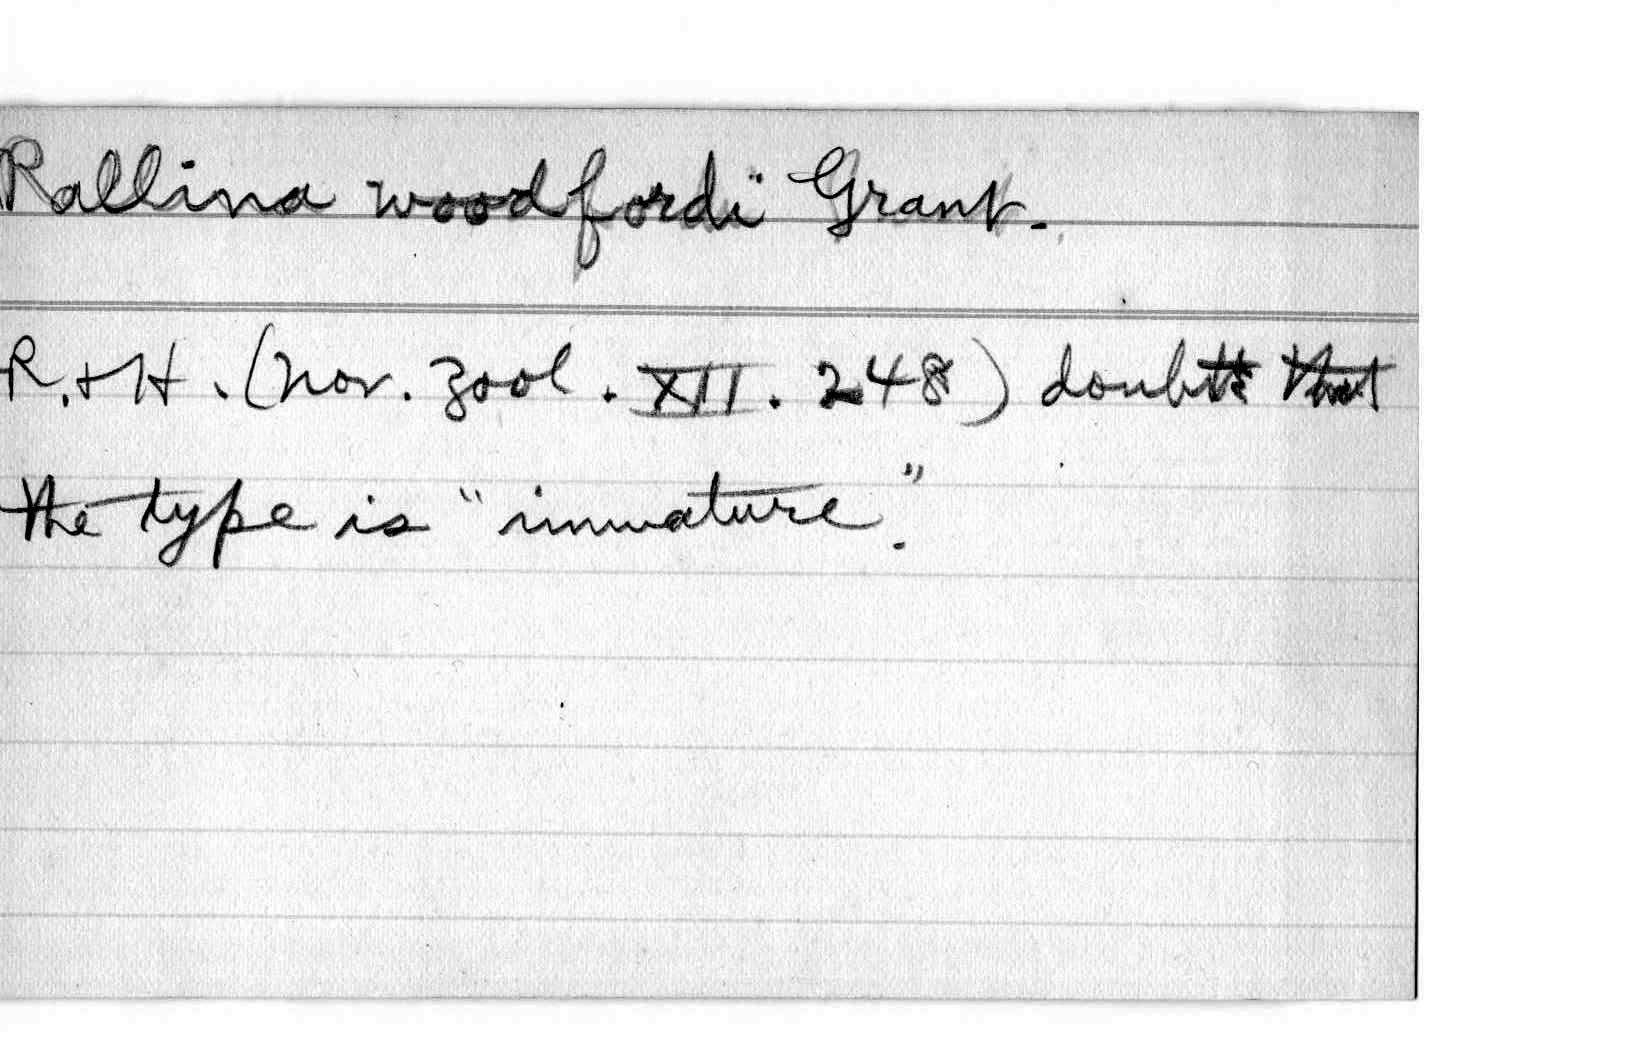 Rallina woodfordi Grant.
R. + H. (Nov. Zool. XII. 248) doubts that
the type is "immature".